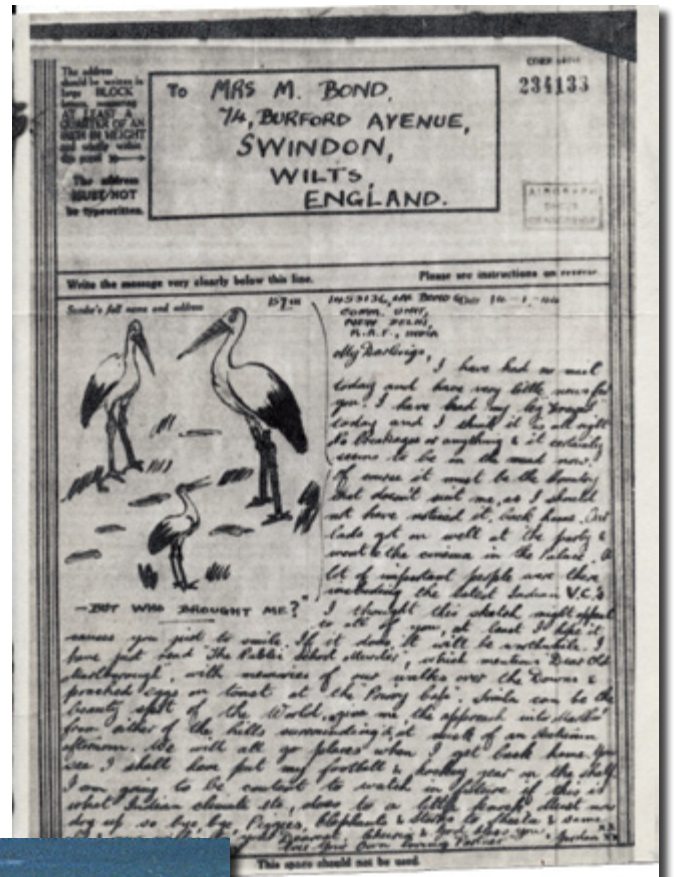 The address
should be written in
large BLOCK
letters
AT LEAST A
QUARTER OF AN
INCH IN HEIGHT
and wholly within
this panel
The address
MUST NOT
be typewritten.
To MRS M. BOND,
74, BURFORD AVENUE,
SWINDON,
WILTS,
ENGLAND.
234133
Write the message very clearly below this line.
Please see instructions on reverse.
Sender's full name and address
BOND
NEW DELHI,
R.A.F., INDIA
My Darlings,
I have had no mail
today and have very little news for
you. I have had my leg
today and I think it is all right
No breakages or anything & it certainly
seems to be in the
Of course it must be the
that doesn't suit me, as I should
not have noticed it, back home. Our
lads got on well at the party &
went to the cinema in the Palace. A
lot of important people were there
including the latest Indian V.C.s
I thought this sketch might appeal
—BUT WHO BROUGHT ME?"
to all of you, at least I hope it
causes you just to smile. If it does it will be worthwhile. I
have just read 'The Public School Murder', which mentions 'Dear Old
Marlborough', with memories of our walks over the Downs &
poached eggs on toast at the Cafe. Simla can be the
beauty spot of the World, give me the approach into
from either of the hills surrounding it, at of an Autumn
afternoon. We will all go places when I get back home. You
see I shall have put my football & hockey gear on the shelf
I am going to be content to watch in future if this is
what Indian climate etc, does to a little Must now
dry up so bye, bye, Elephants & Storks to Sheila & some
God bless you
Your Own Loving
This space should not be used.